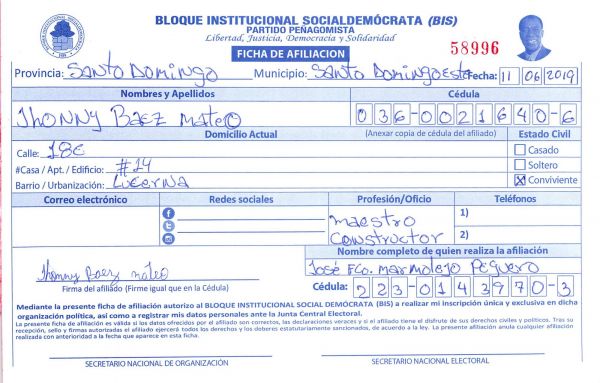 BLOQUE INSTITUCIONAL SOCIALDEMÓCRATA (BIS)
PARTIDO PEÑAGOMISTA
Libertad, Justicia, Democracia y Solidaridad
FICHA DE AFILIACION
58996
Provincia: Santo Domingo Municipio: Santo Domingo Este Fecha: 11 06 2019
Nombres y Apellidos Cédula
Jhonny Baez Mateo 036-0021640-6
Domicilio Actual (Anexar copia de cédula del afiliado) Estado Civil
Calle: 18E Casado
#Casa / Apt. / Edificio: #14 Soltero
Barrio / Urbanización: Lucerna X Conviviente
Correo electrónico Redes sociales Profesión/Oficio Teléfonos
Maestro 1)
Constructor 2)
Nombre completo de quien realiza la afiliación
Jhonny Baez mateo José Fco. Marmolejo Peguero
Firma del afiliado (Firme igual que en la Cédula) Cédula: 223-0143970-3
Mediante la presente ficha de afiliación autorizo al BLOQUE INSTITUCIONAL SOCIAL DEMÓCRATA (BIS) a realizar mi inscripción única y exclusiva en dicha
organización política, así como a registrar mis datos personales ante la Junta Central Electoral.
La presente ficha de afiliación es válida si los datos ofrecidos por el afiliado son correctos, las declaraciones veraces y si el afiliado tiene el disfrute de sus derechos civiles y políticos. Tras su
recepción, sello y firmas autorizadas el afiliado ejercerá todos los derechos y los deberes estatutariamente sancionados, de acuerdo a la ley. La presente afiliación anula cualquier afiliación
realizada con anterioridad a la fecha que aparece en esta ficha.
SECRETARIO NACIONAL DE ORGANIZACIÓN SECRETARIO NACIONAL ELECTORAL